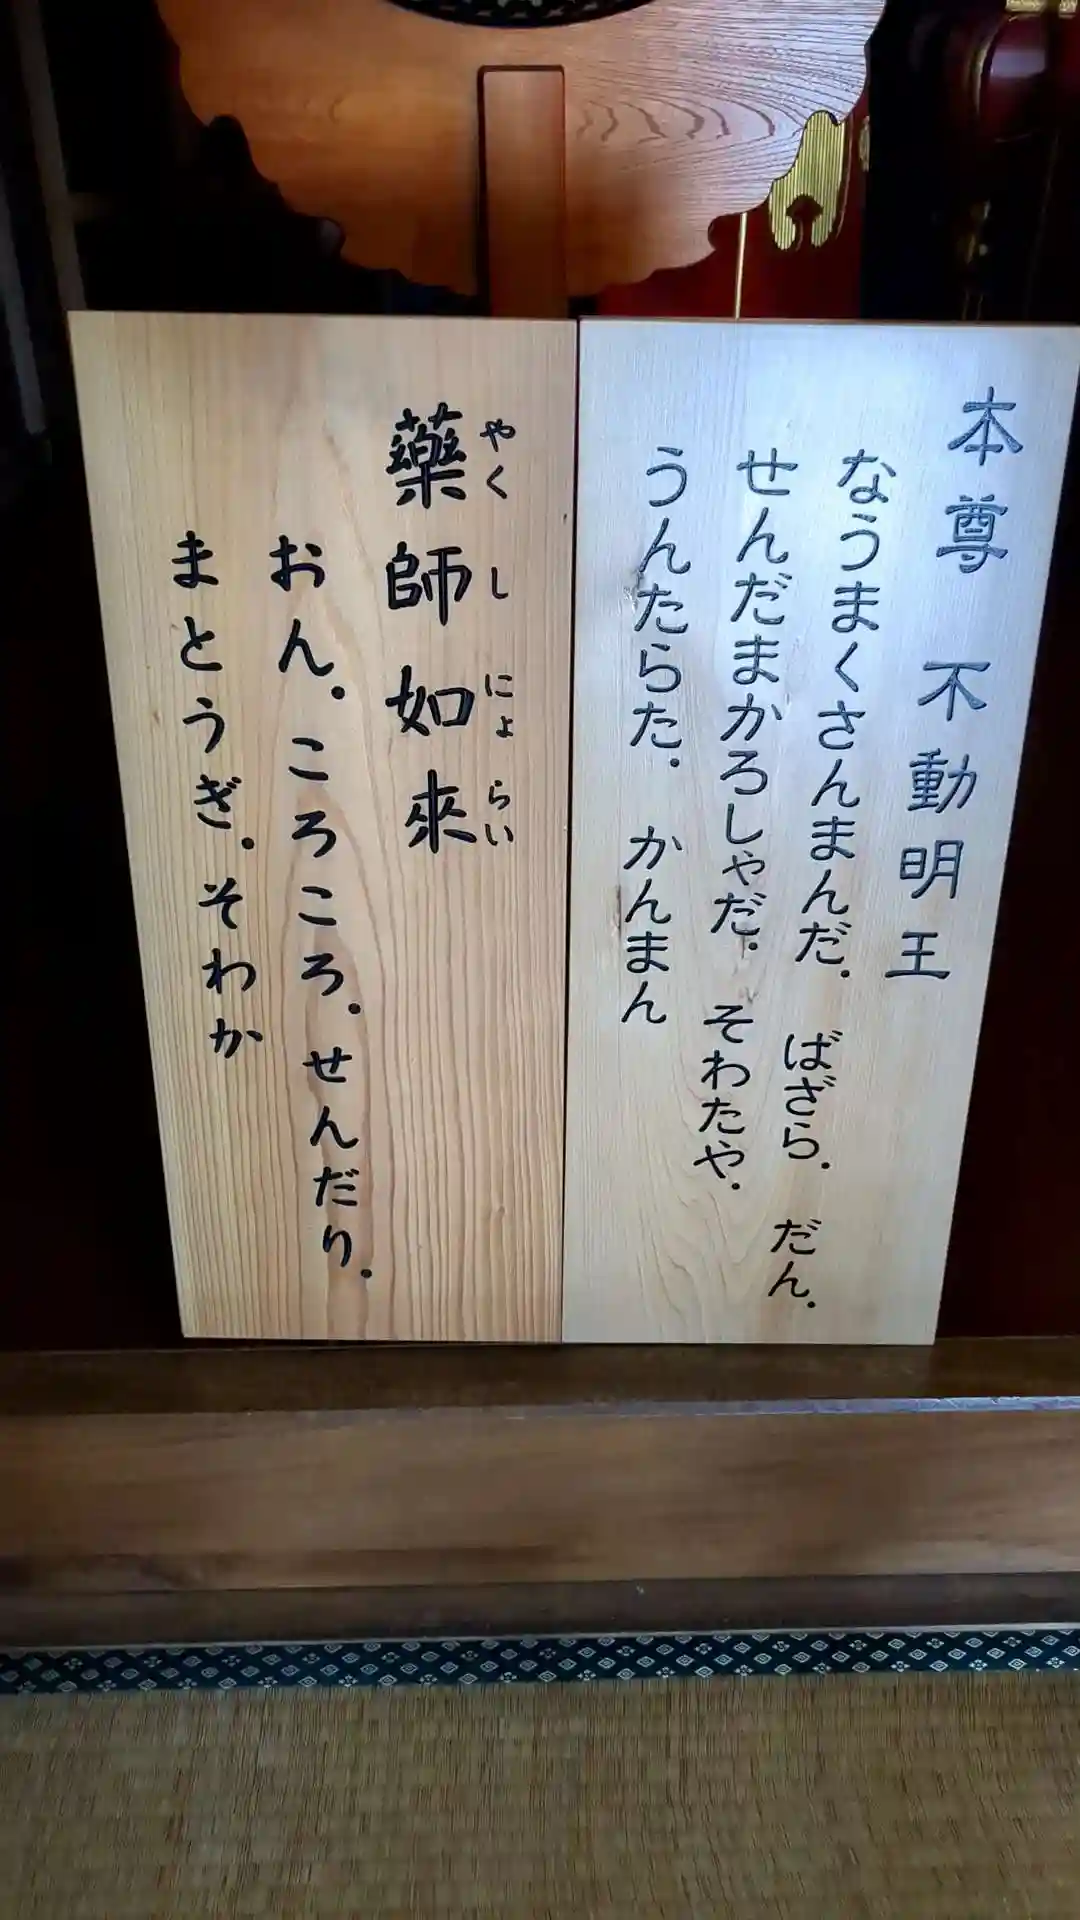 本尊 不動明王
なうまくさんまんだ. ばざら. だん.
せんだまかろしゃだ. そわたや.
うんたらた. かんまん
藥師如來
やくしにょらい
おん. ころころ. せんだり.
まとうぎ. そわか